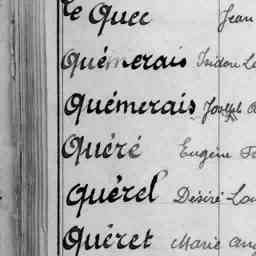 le Quec Jean
Quémerais Isidore
Quémerais Joseph
Quéré Eugène
Quérel Désiré
Quéret Marie